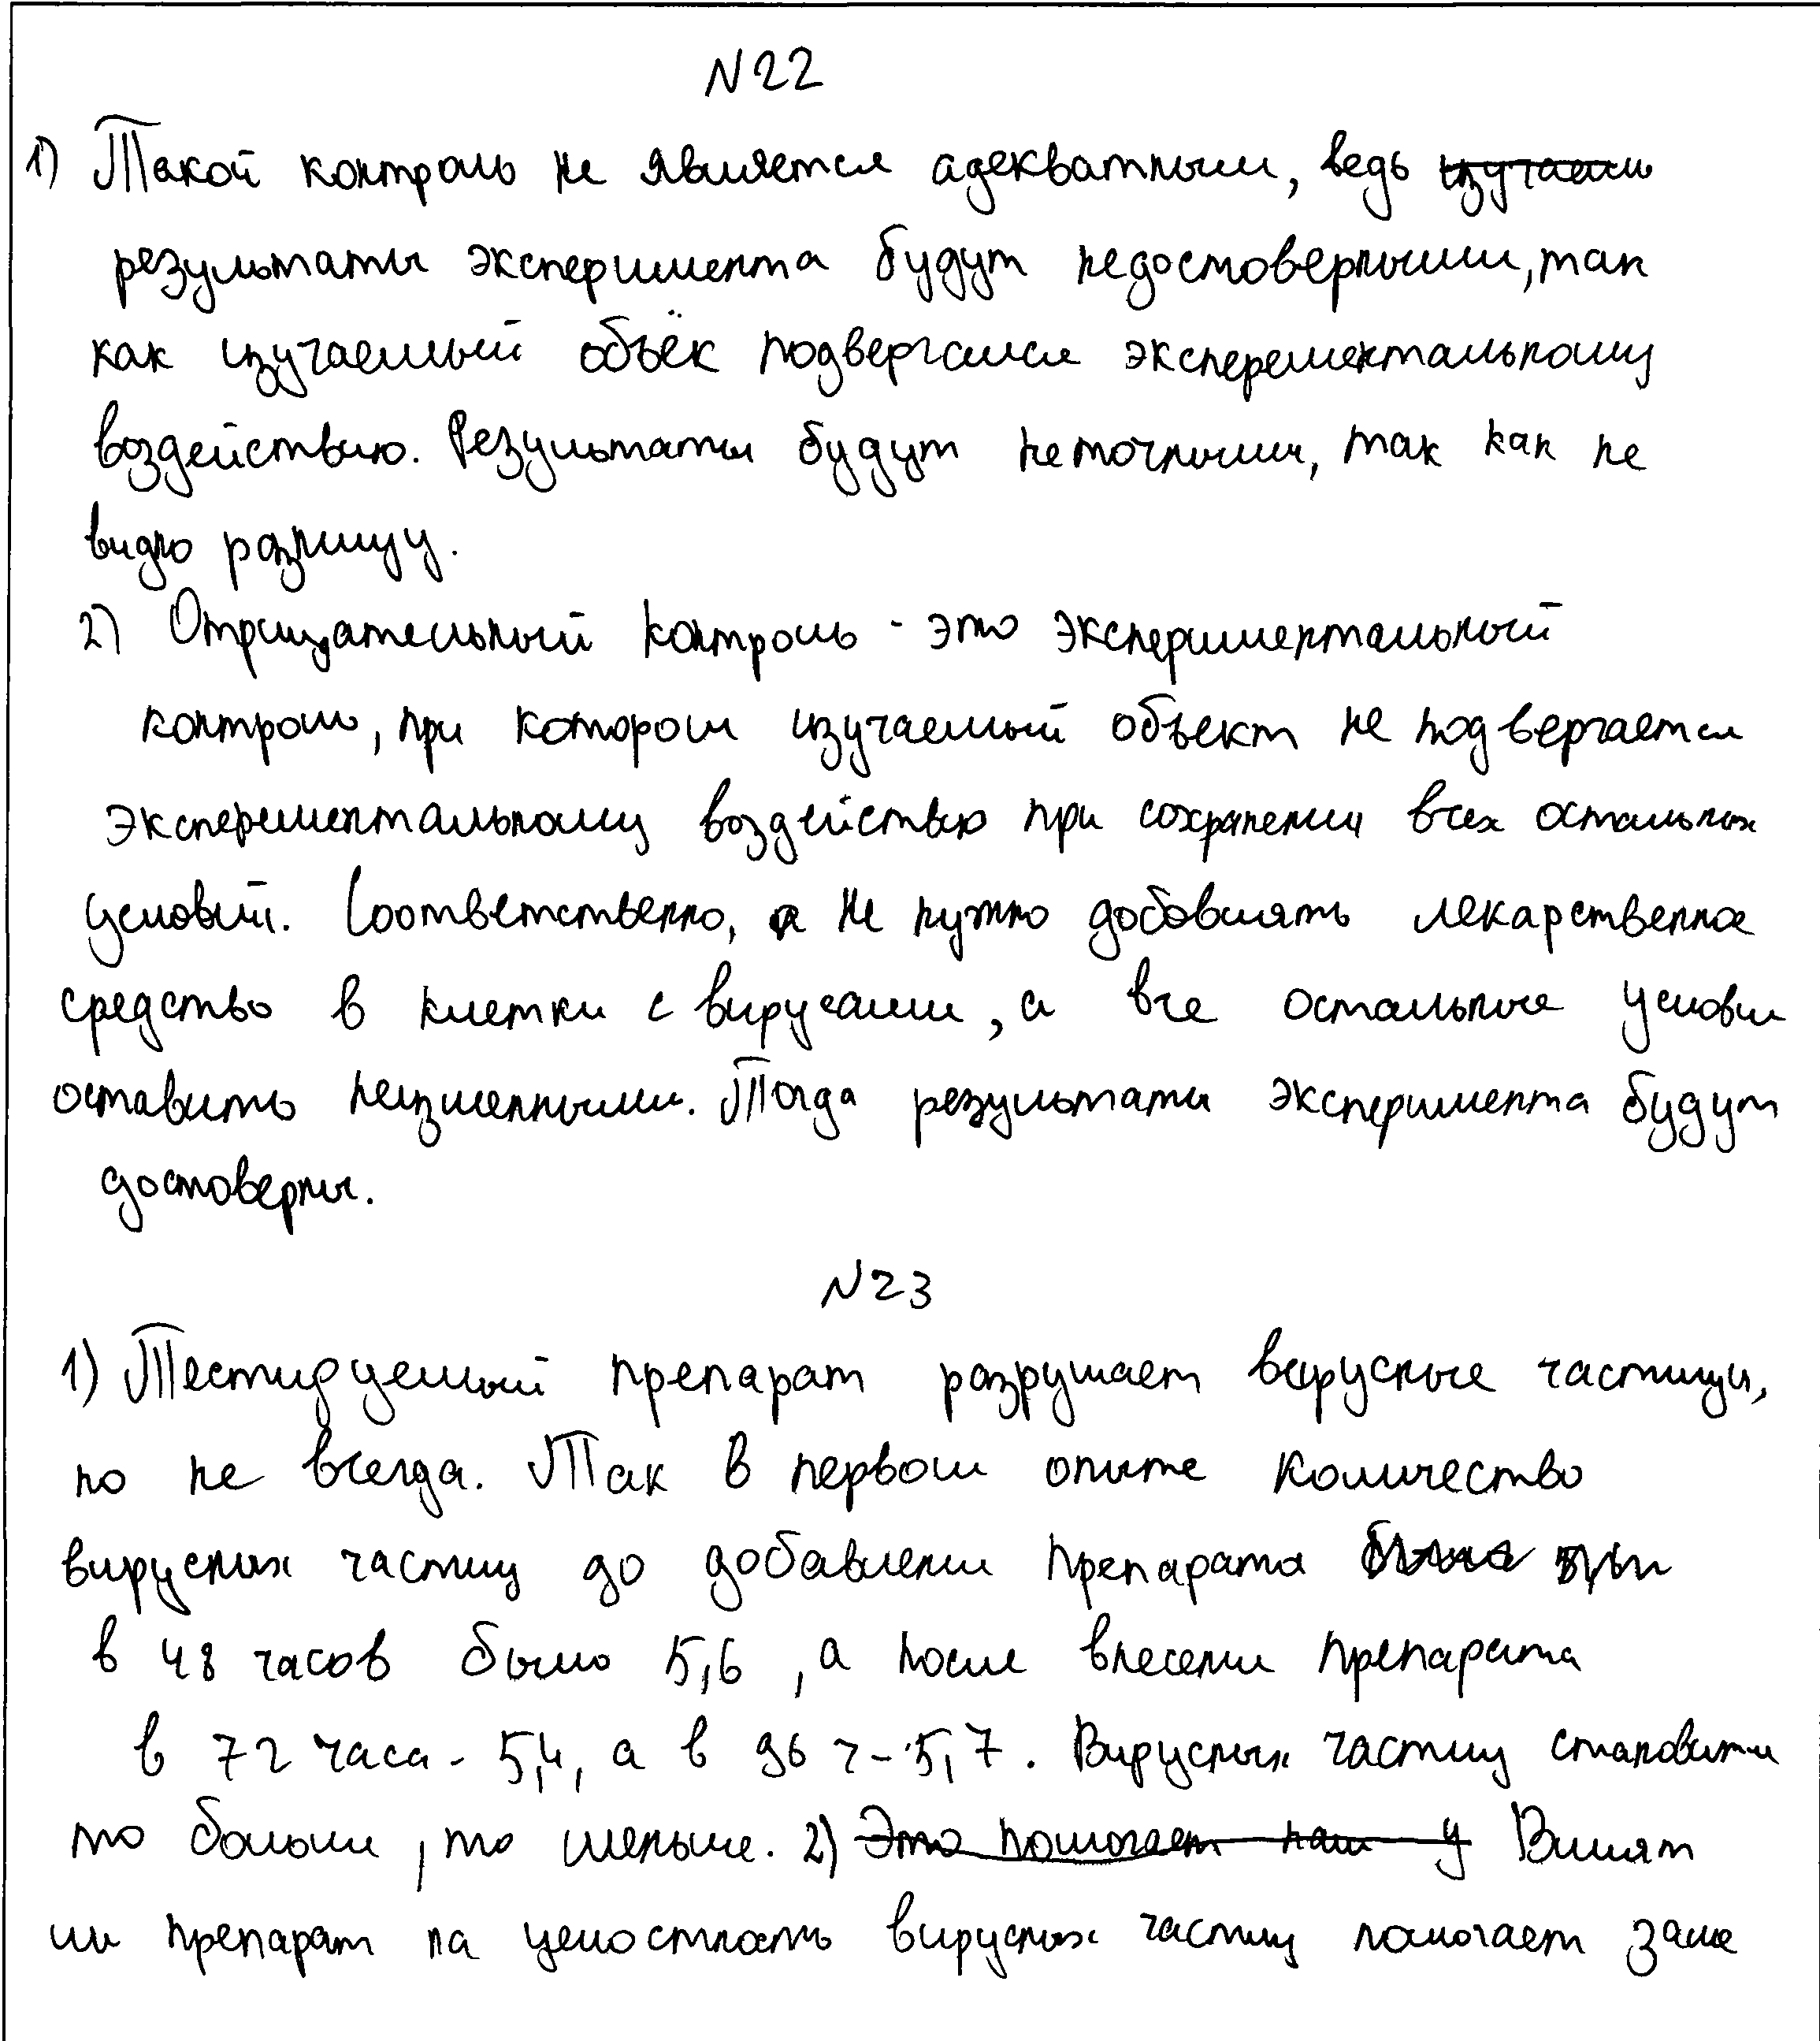 N22
1) Такой контроль не является адекватным, ведь изучаем
результаты эксперимента будут недостоверными, так
как изучаемый объёк подвергался эксперементальному
воздействию. Результаты будут неточными, так как не
видно разницу.
2) Отрицательный контроль - это экспериментальный
контроль, при котором изучаемый объект не подвергается
экспериментальному воздействию при сохранении всех остальных
условий. Соответственно, не нужно добавлять лекарственное
средство в клетки с вирусами, а все остальные услови
оставить неизменными. Тогда результаты эксперимента будут
достоверны.
N23
1) Тестируемый препарат разрушает вирусные частицы,
но не всегда. Так в первом опыте количество
вирусных частиц до добавлени препарата
в 48 часов было 5,6, а после внесени препарата
в 72 часа - 5,4, а в 96 ч - 5,7. Вирусных частиц становитс
то больше, то меньше. 2) Это помогает нам у Влият
ли препарат на целостность вирусных частиц помогает заме